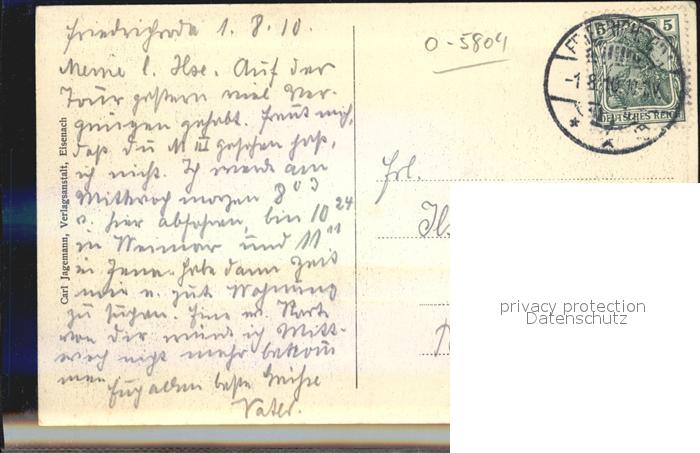 Friedrichroda 1. 8. 10.
Meine l. Ilse. Auf der
Tour gestern viel Ver-
gnügen gehabt. Freut mich,
daß du M III gesehen hast,
ich nicht. Ich werde am
Mittwoch morgen 8 03
v. hier abfahren, bin 10 24
in Weimar und 11 11
in Jena. Habe dann Zeit
mir e. gute Wohnung
zu suchen. Eine Karte
von dir würde ich Mitt-
woch nicht mehr bekom
men. Euch allen beste Grüße
Vater.
Carl Jagemann, Verlagsanstalt, Eisenach
O-5804
5 5
DEUTSCHES REICH
Frl.
privacy protection
Datenschutz